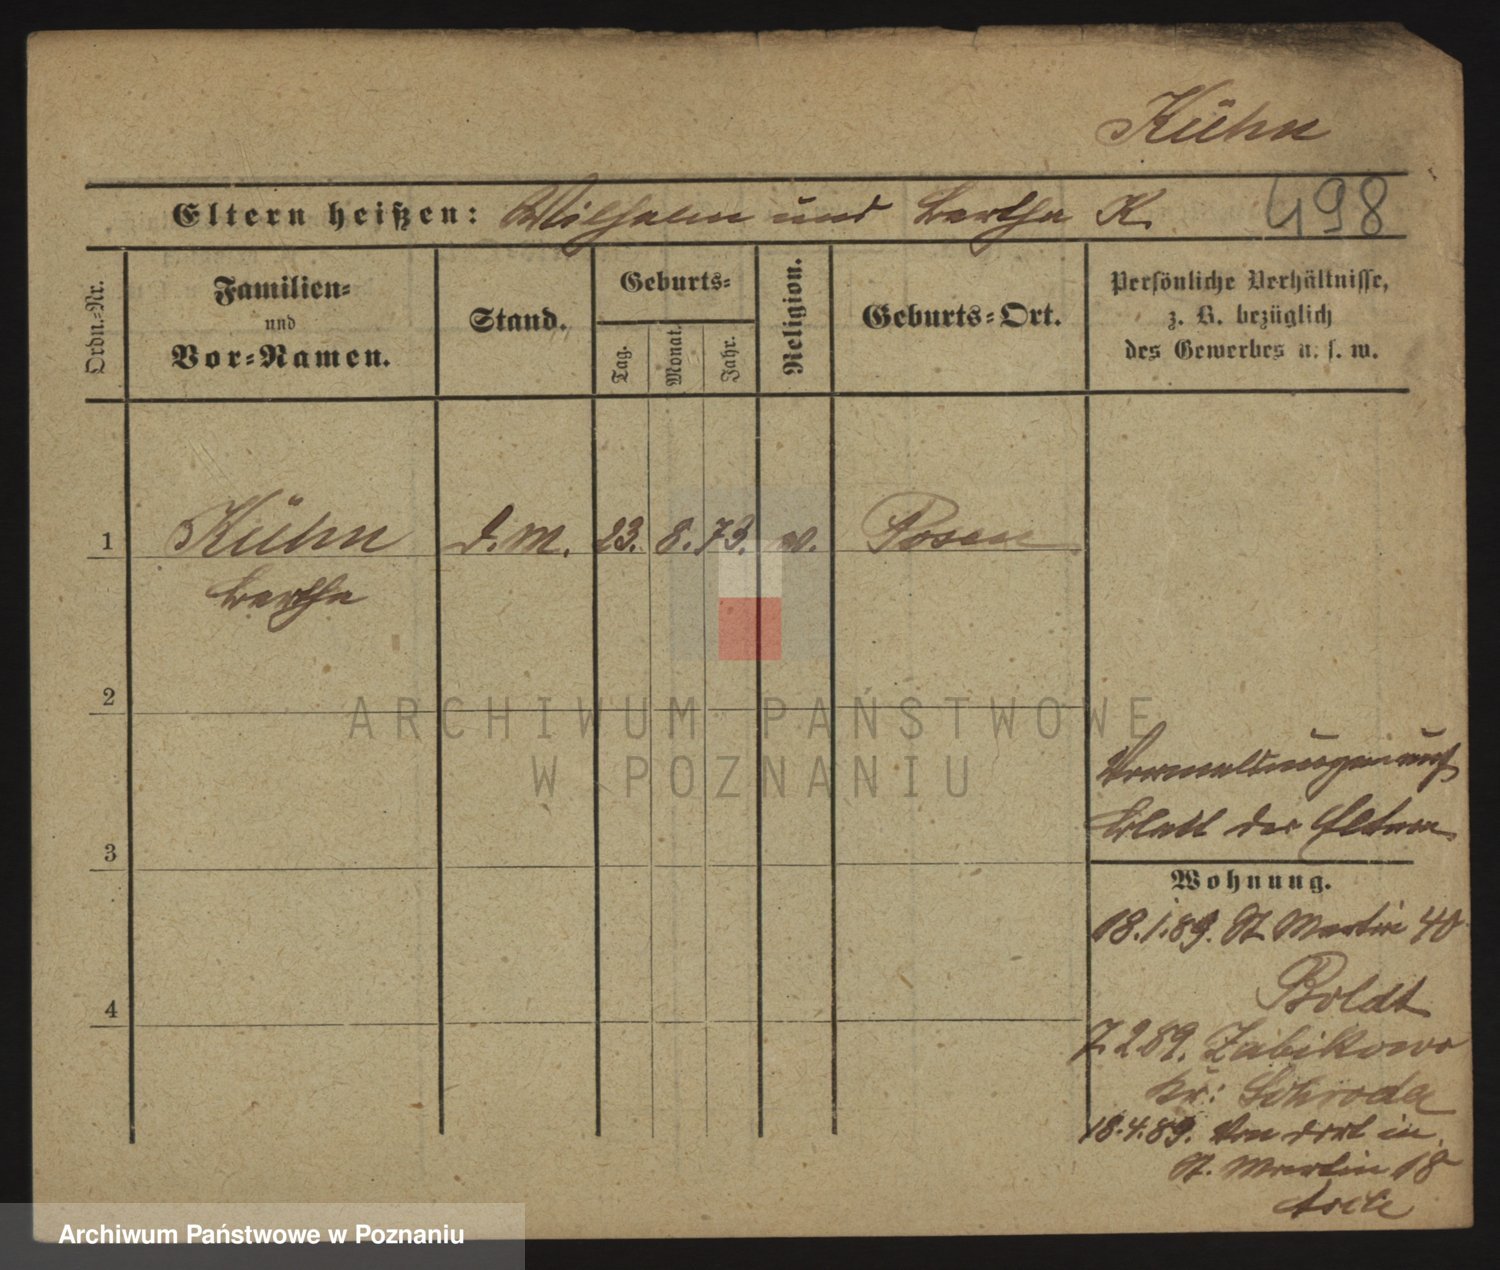 Kühn
Eltern heißen: Wilhelm und Bertha K.
498
Ordn.-Nr.
Familien-
und
Vor-Namen.
Stand.
Geburts-
Tag.
Monat.
Jahr.
Religion.
Geburts-Ort.
Persönliche Verhältnisse,
z. B. bezüglich
des Gewerbes u. s. w.
1
Kühn
Bertha
d. M.
23.
8.
73.
Posen
2
3
4
Blatt der Eltern
Wohnung.
18.1.89. St Martin 40
Boldt
7.2.89. Zabikowo
Kr: Schroda
18.4.89. Von dort in
St. Martin 18
ARCHIWUM PAŃSTWOWE
W POZNANIU
Archiwum Państwowe w Poznaniu